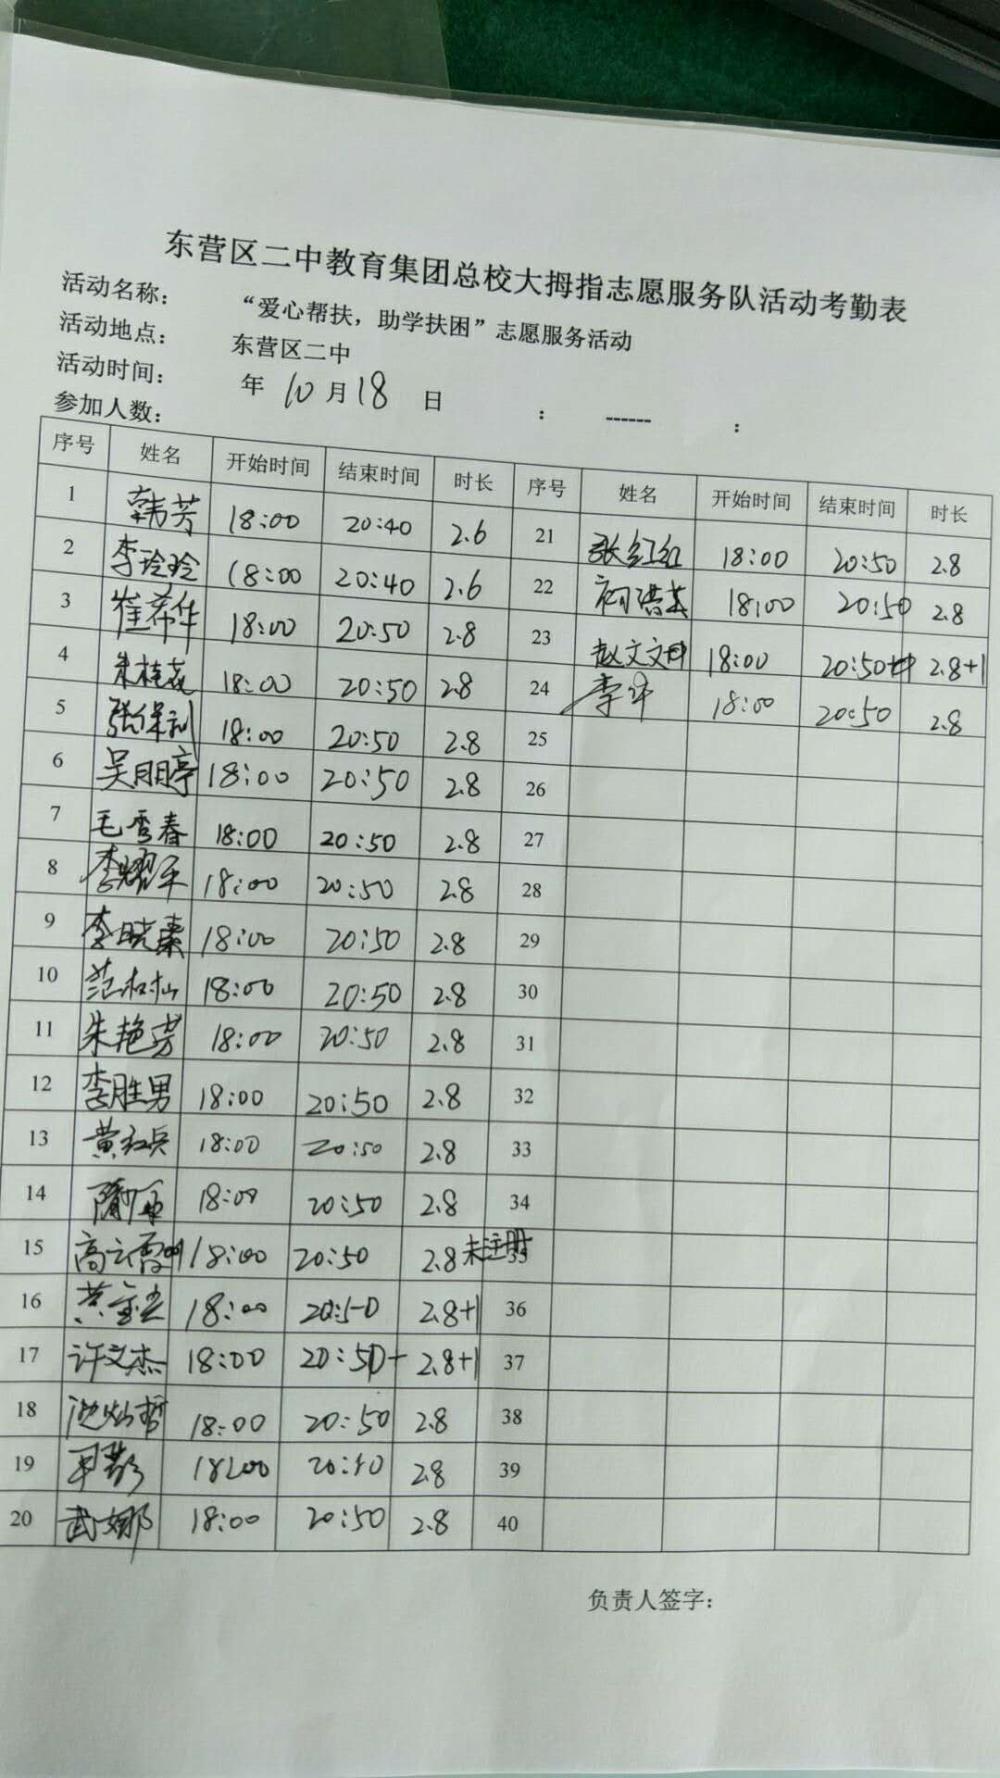 东营区二中教育集团总校大拇指志愿服务队活动考勤表
活动名称： “爱心帮扶，助学扶困”志愿服务活动
活动地点： 东营区二中
活动时间： 年 10 月 18 日 : ------ :
参加人数：
序号 姓名 开始时间 结束时间 时长 序号 姓名 开始时间 结束时间 时长
1 韩芳 18:00 20:40 2.6 21 张红红 18:00 20:50 2.8
2 李玲玲 18:00 20:40 2.6 22 18:00 20:50 2.8
3 崔希华 18:00 20:50 2.8 23 赵文文 18:00 20:50 2.8+1
4 朱桂花 18:00 20:50 2.8 24 李 18:00 20:50 2.8
5 张保利 18:00 20:50 2.8 25
6 吴朋亭 18:00 20:50 2.8 26
7 毛秀春 18:00 20:50 2.8 27
8 李耀平 18:00 20:50 2.8 28
9 李晓 18:00 20:50 2.8 29
10 范 18:00 20:50 2.8 30
11 朱艳芳 18:00 20:50 2.8 31
12 李胜男 18:00 20:50 2.8 32
13 黄红兵 18:00 20:50 2.8 33
14 隋 18:00 20:50 2.8 34
15 高云霞 18:00 20:50 2.8 未注册 35
16 黄 18:00 20:50 2.8+1 36
17 许文杰 18:00 20:50+ 2.8+1 37
18 池灿哲 18:00 20:50 2.8 38
19 18:00 20:50 2.8 39
20 武娜 18:00 20:50 2.8 40
负责人签字：